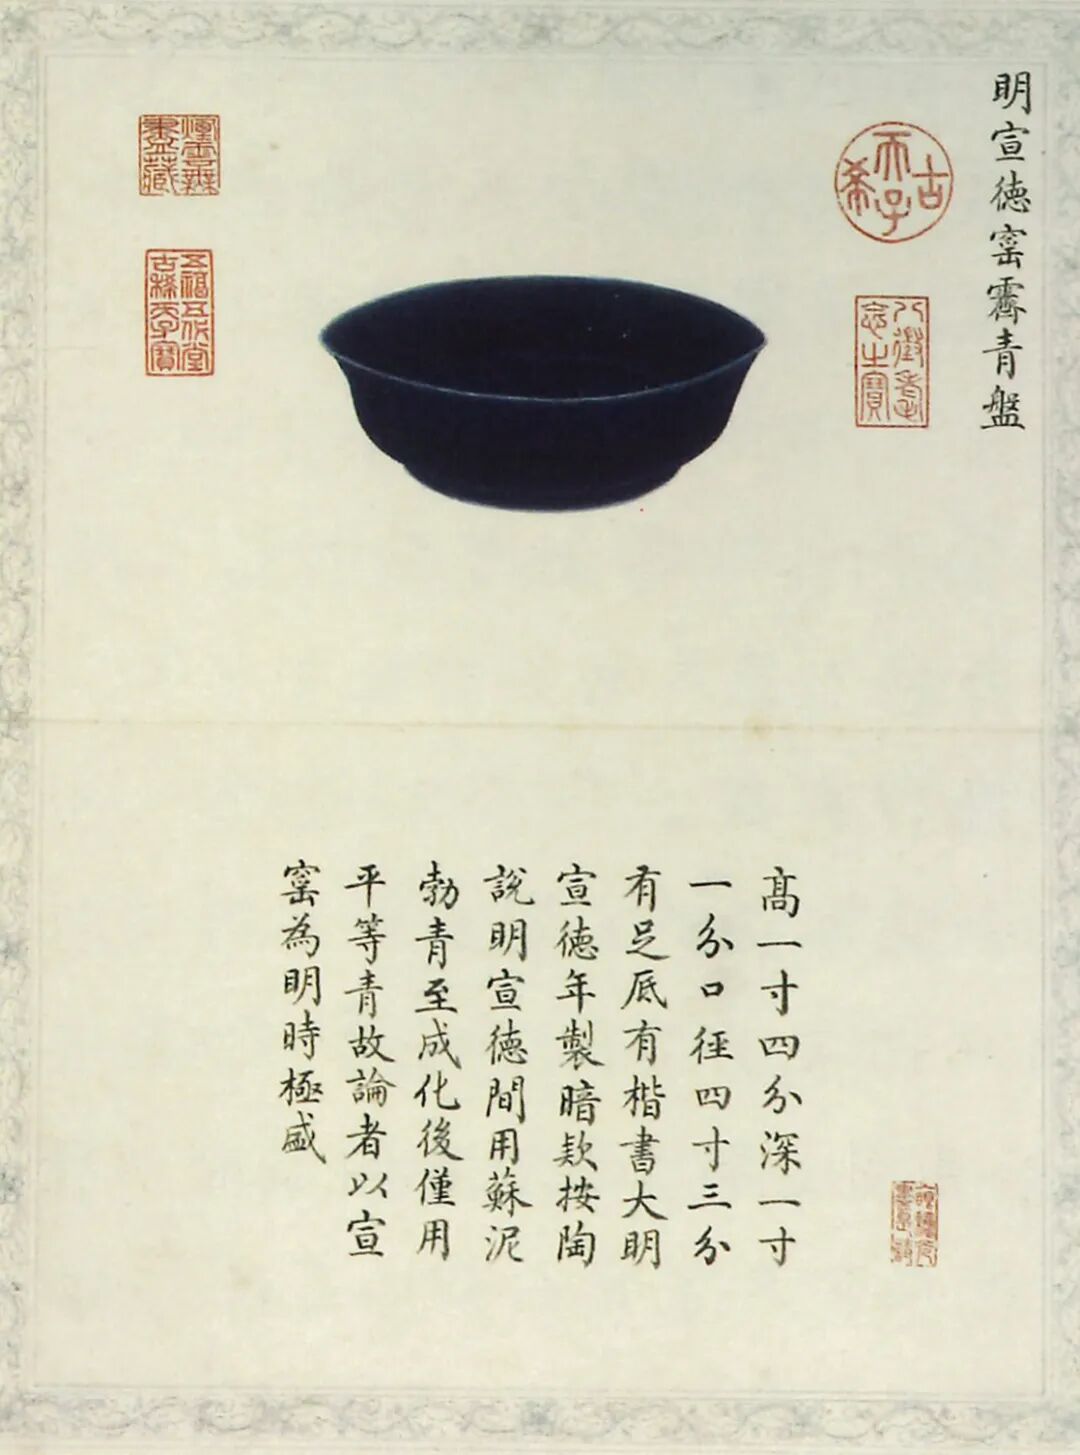 明宣徳窰霽青盤
古希天子
八徵耄念之寶
五福五代堂古稀天子寶
髙一寸四分深一寸
一分口徑四寸三分
有足底有楷書大明
宣徳年製暗款按陶
說明宣徳間用蘇泥
勃青至成化後僅用
平等青故論者以宣
窰為明時極盛